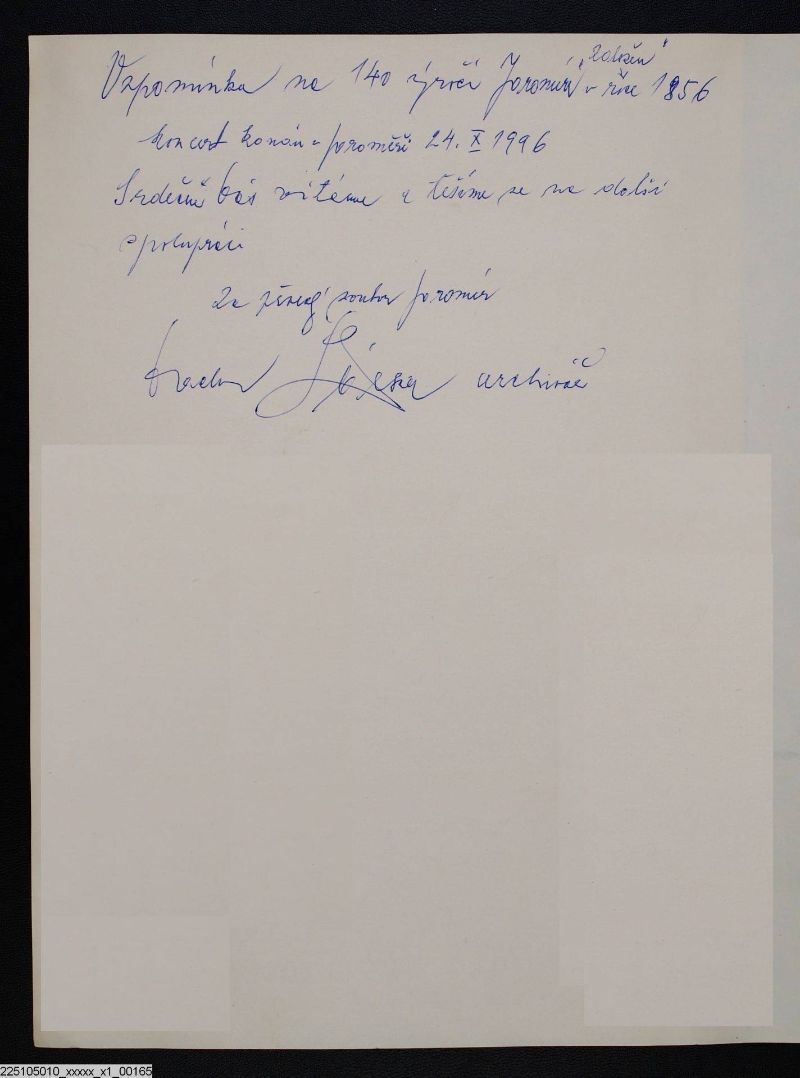 Vzpomínka na 140 výročí Jaromír "založen" v roce 1856
koncert konán v Jaroměři 24. X 1996
Srdečně Vás vítáme a těšíme se na další
spolupráci
Za pěvecký soubor Jaromír
Václav archivář
225105010_xxxxx_x1_00165